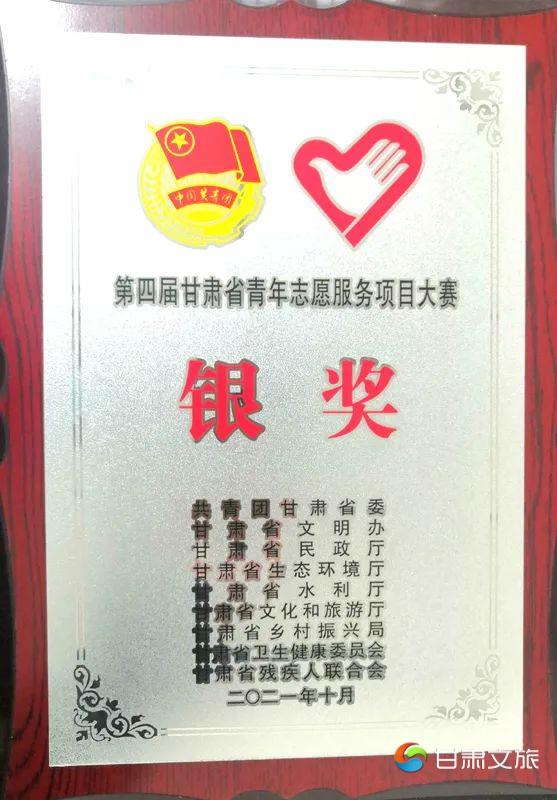 中国共青团
第四届甘肃省青年志愿服务项目大赛
银奖
共青团甘肃省委
甘肃省文明办
甘肃省民政厅
甘肃省生态环境厅
甘肃省水利厅
甘肃省文化和旅游厅
甘肃省乡村振兴局
甘肃省卫生健康委员会
甘肃省残疾人联合会
二〇二一年十月
甘肃文旅